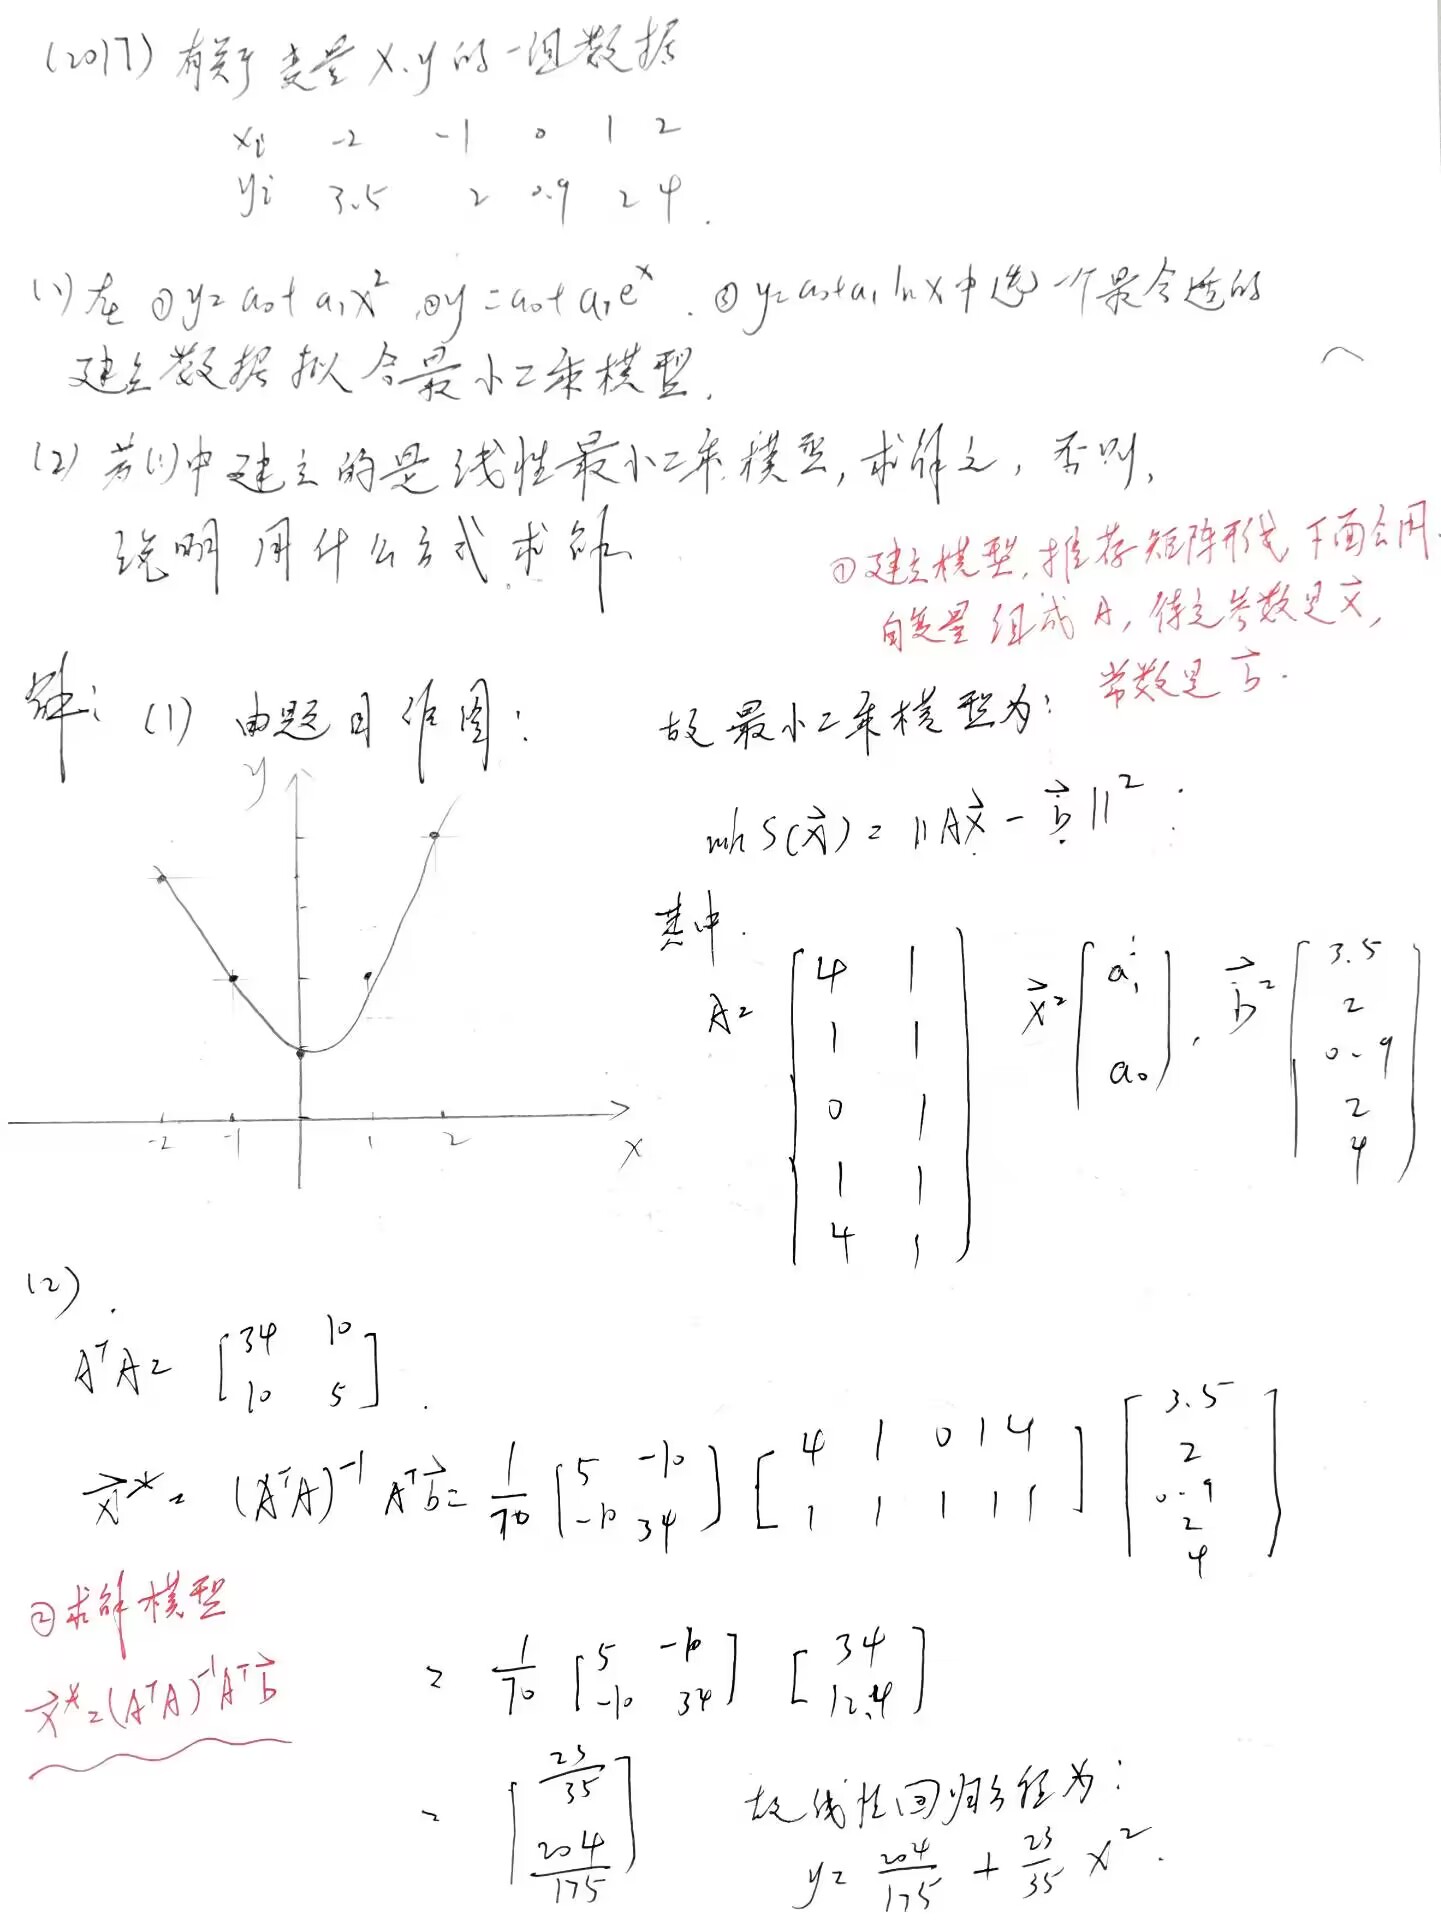 (2017) 有关于变量 x、y 的一组数据
xi -2 -1 0 1 2
yi 3.5 2 0.9 2 4.
(1) 在 ① y=a₀+a₁x², ② y=a₀+a₁eˣ. ③ y=a₀+a₁lnx, 中选一个最合适的
建立数据拟合最小二乘模型.
(2) 若(1)中建立的是线性最小二乘模型, 求解之, 否则,
说明用什么方式求解.
①建立模型, 推荐矩阵形式, 下面会用.
自变量组成A, 待定参数是x⃗,
常数是b⃗.
解: (1) 由题目作图:
y
-2 -1 1 2 x
故最小二乘模型为:
min S(x⃗) = ||Ax⃗ - b⃗||²
其中.
A = [4 1
1 1
0 1
1 1
4 1]
x⃗ = [a₁
a₀],
b⃗ = [3.5
2
0.9
2
4]
(2).
AᵀA = [34 10
10 5].
x⃗* = (AᵀA)⁻¹Aᵀb⃗ = 1/70 [5 -10
-10 34] [4 1 0 1 4
1 1 1 1 1] [3.5
2
0.9
2
4]
②求解模型
x⃗* = (AᵀA)⁻¹Aᵀb⃗
= 1/70 [5 -10
-10 34] [34
12.4]
= [23/35
204/175]
故线性回归方程为:
y = 204/175 + 23/35 x².